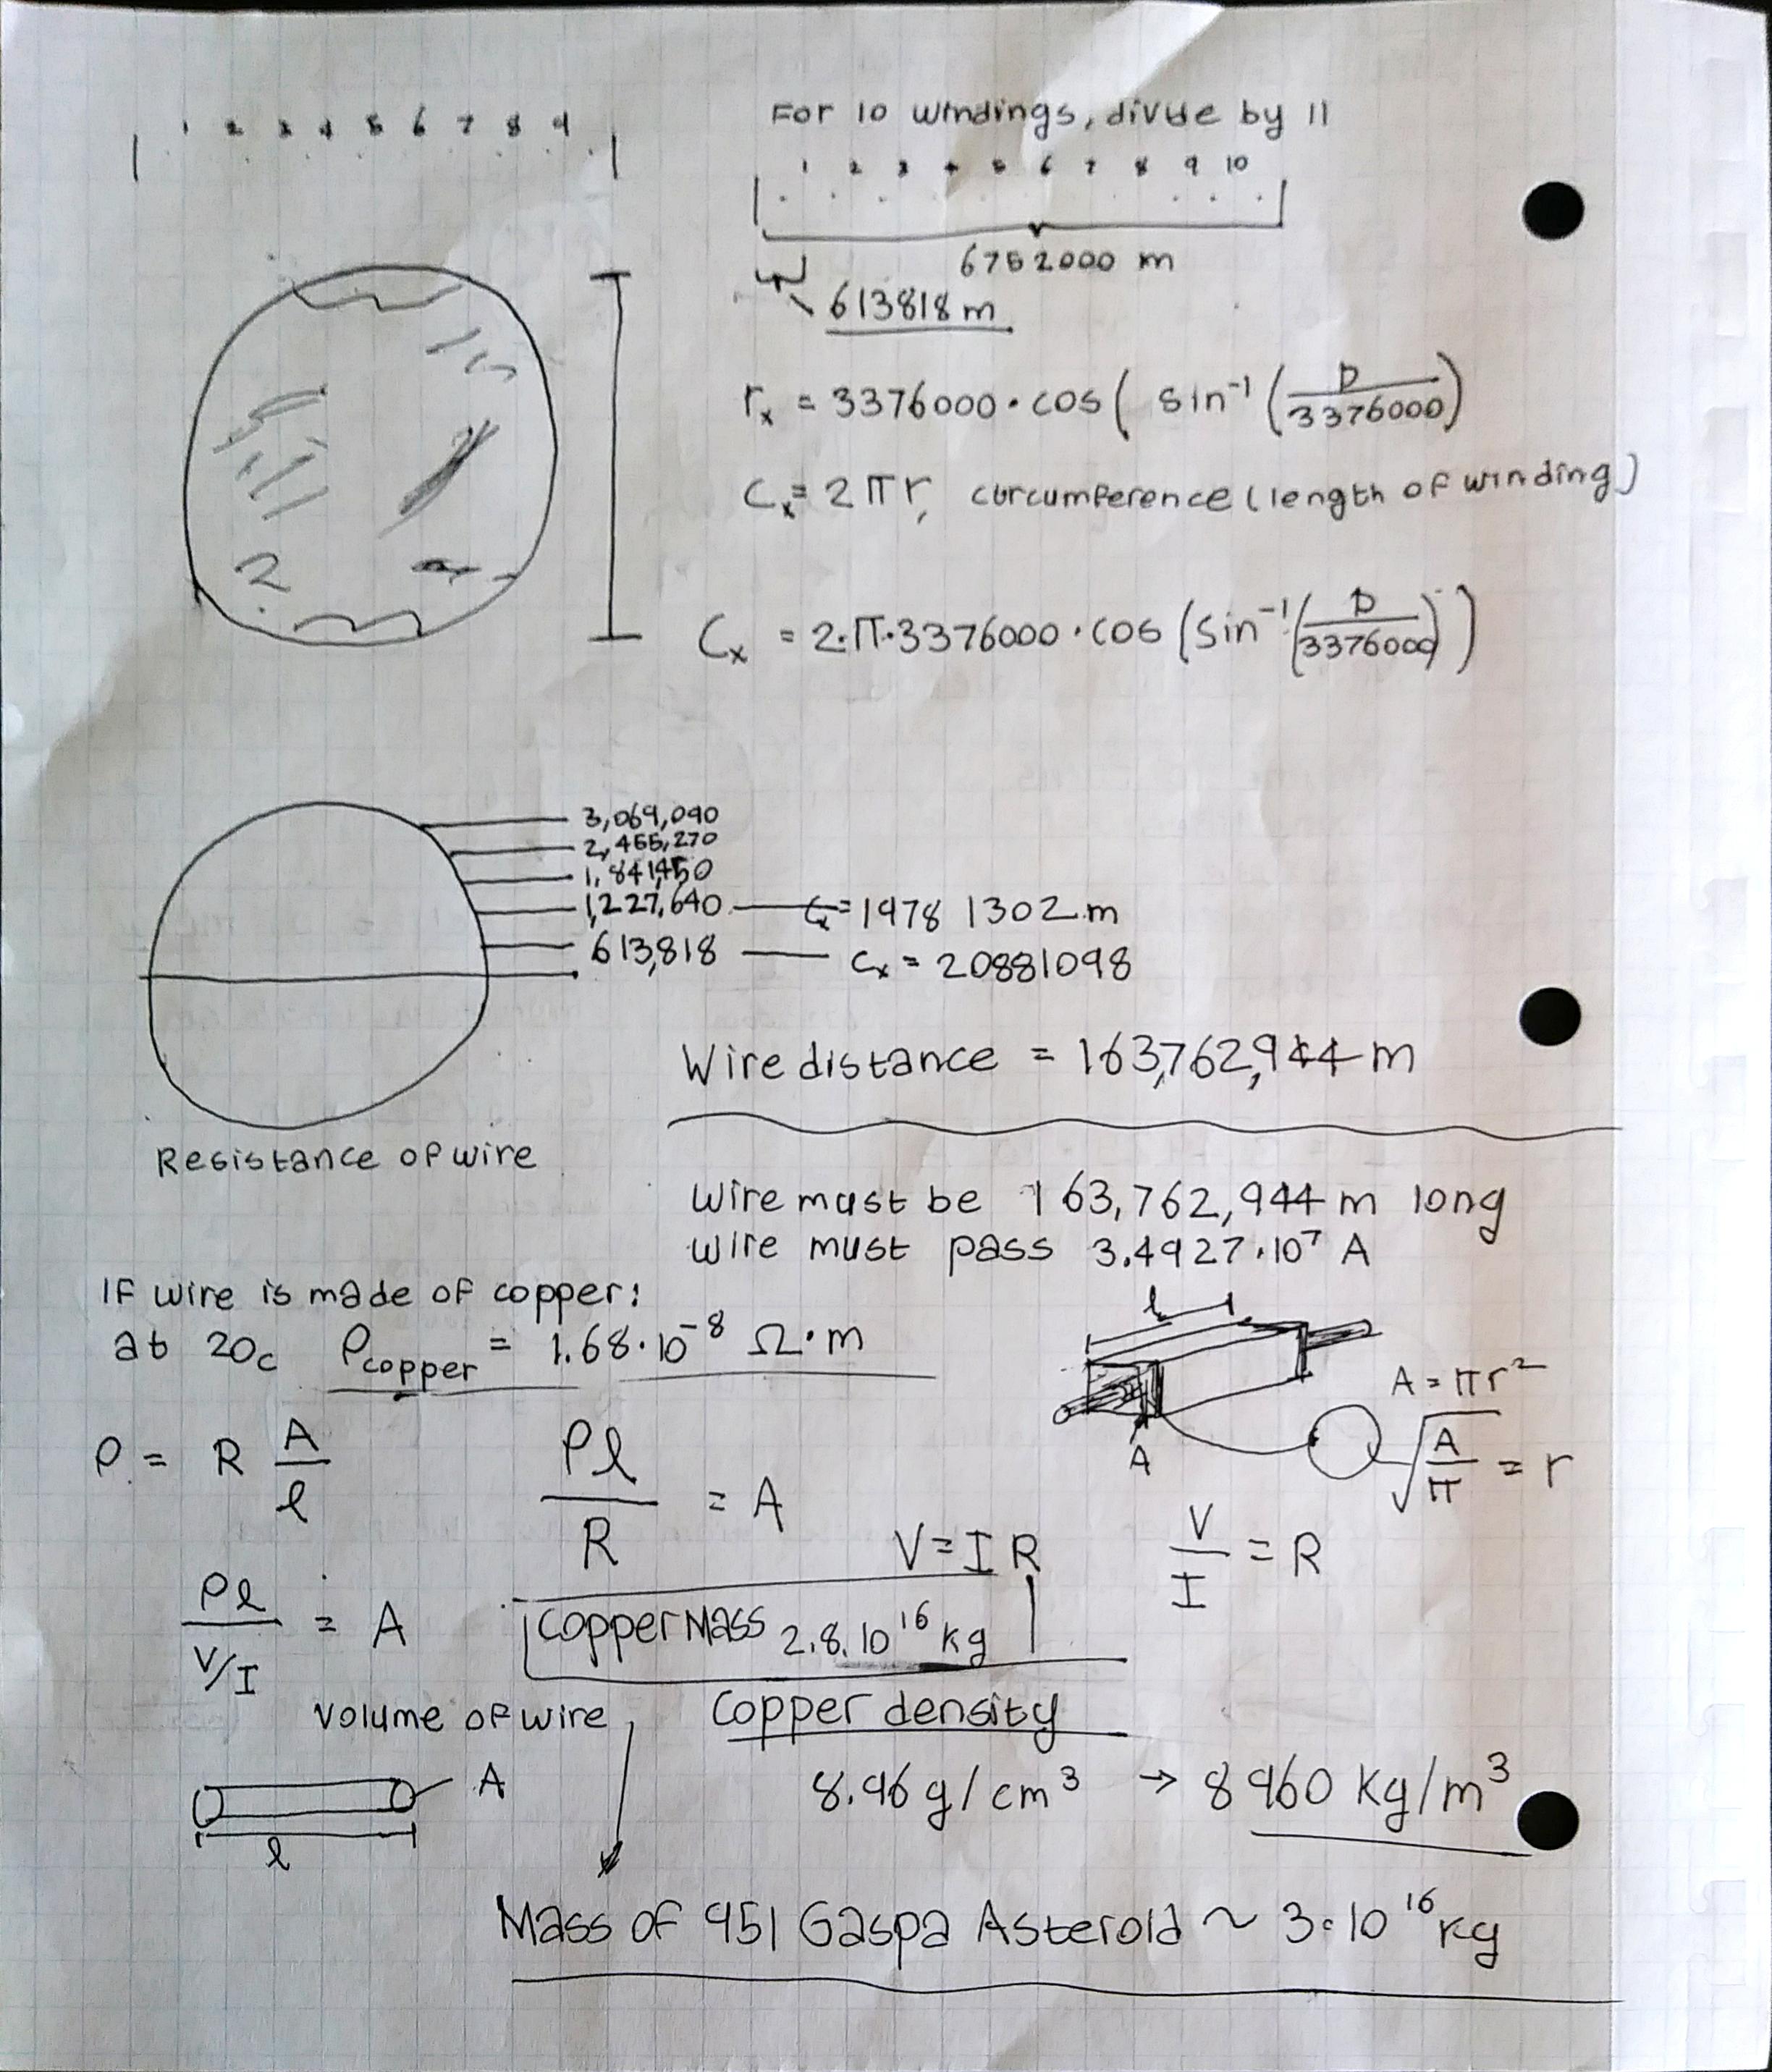 1 2 3 4 5 6 7 8 9
For 10 windings, divide by 11
1 2 3 4 5 6 7 8 9 10
6752000 m
613818 m
rₓ = 3376000 · cos( sin⁻¹ (D/3376000)
Cₓ = 2πr, circumference (length of winding)
Cₓ = 2·π·3376000 · cos (sin⁻¹(D/3376000))
3,069,090
2,455,270
1,841,450
1,227,640 Cₓ = 19781302 m
613,818 Cₓ = 20881098
Wire distance = 163,762,944 m
Resistance of wire
Wire must be 163,762,944 m long
Wire must pass 3.4927·10⁷ A
IF wire is made of copper:
at 20c ρcopper = 1.68·10⁻⁸ Ω·m
l
A
A = πr²
√(A/π) = r
ρ = R A/l
ρl/R = A
V = I R
V/I = R
ρl/(V/I) = A
Copper Mass 2.8·10¹⁶ kg
Volume of wire
Copper density
A
l
8.96 g/cm³ → 8960 Kg/m³
Mass of 951 Gaspa Asteroid ~ 3·10¹⁶ kg